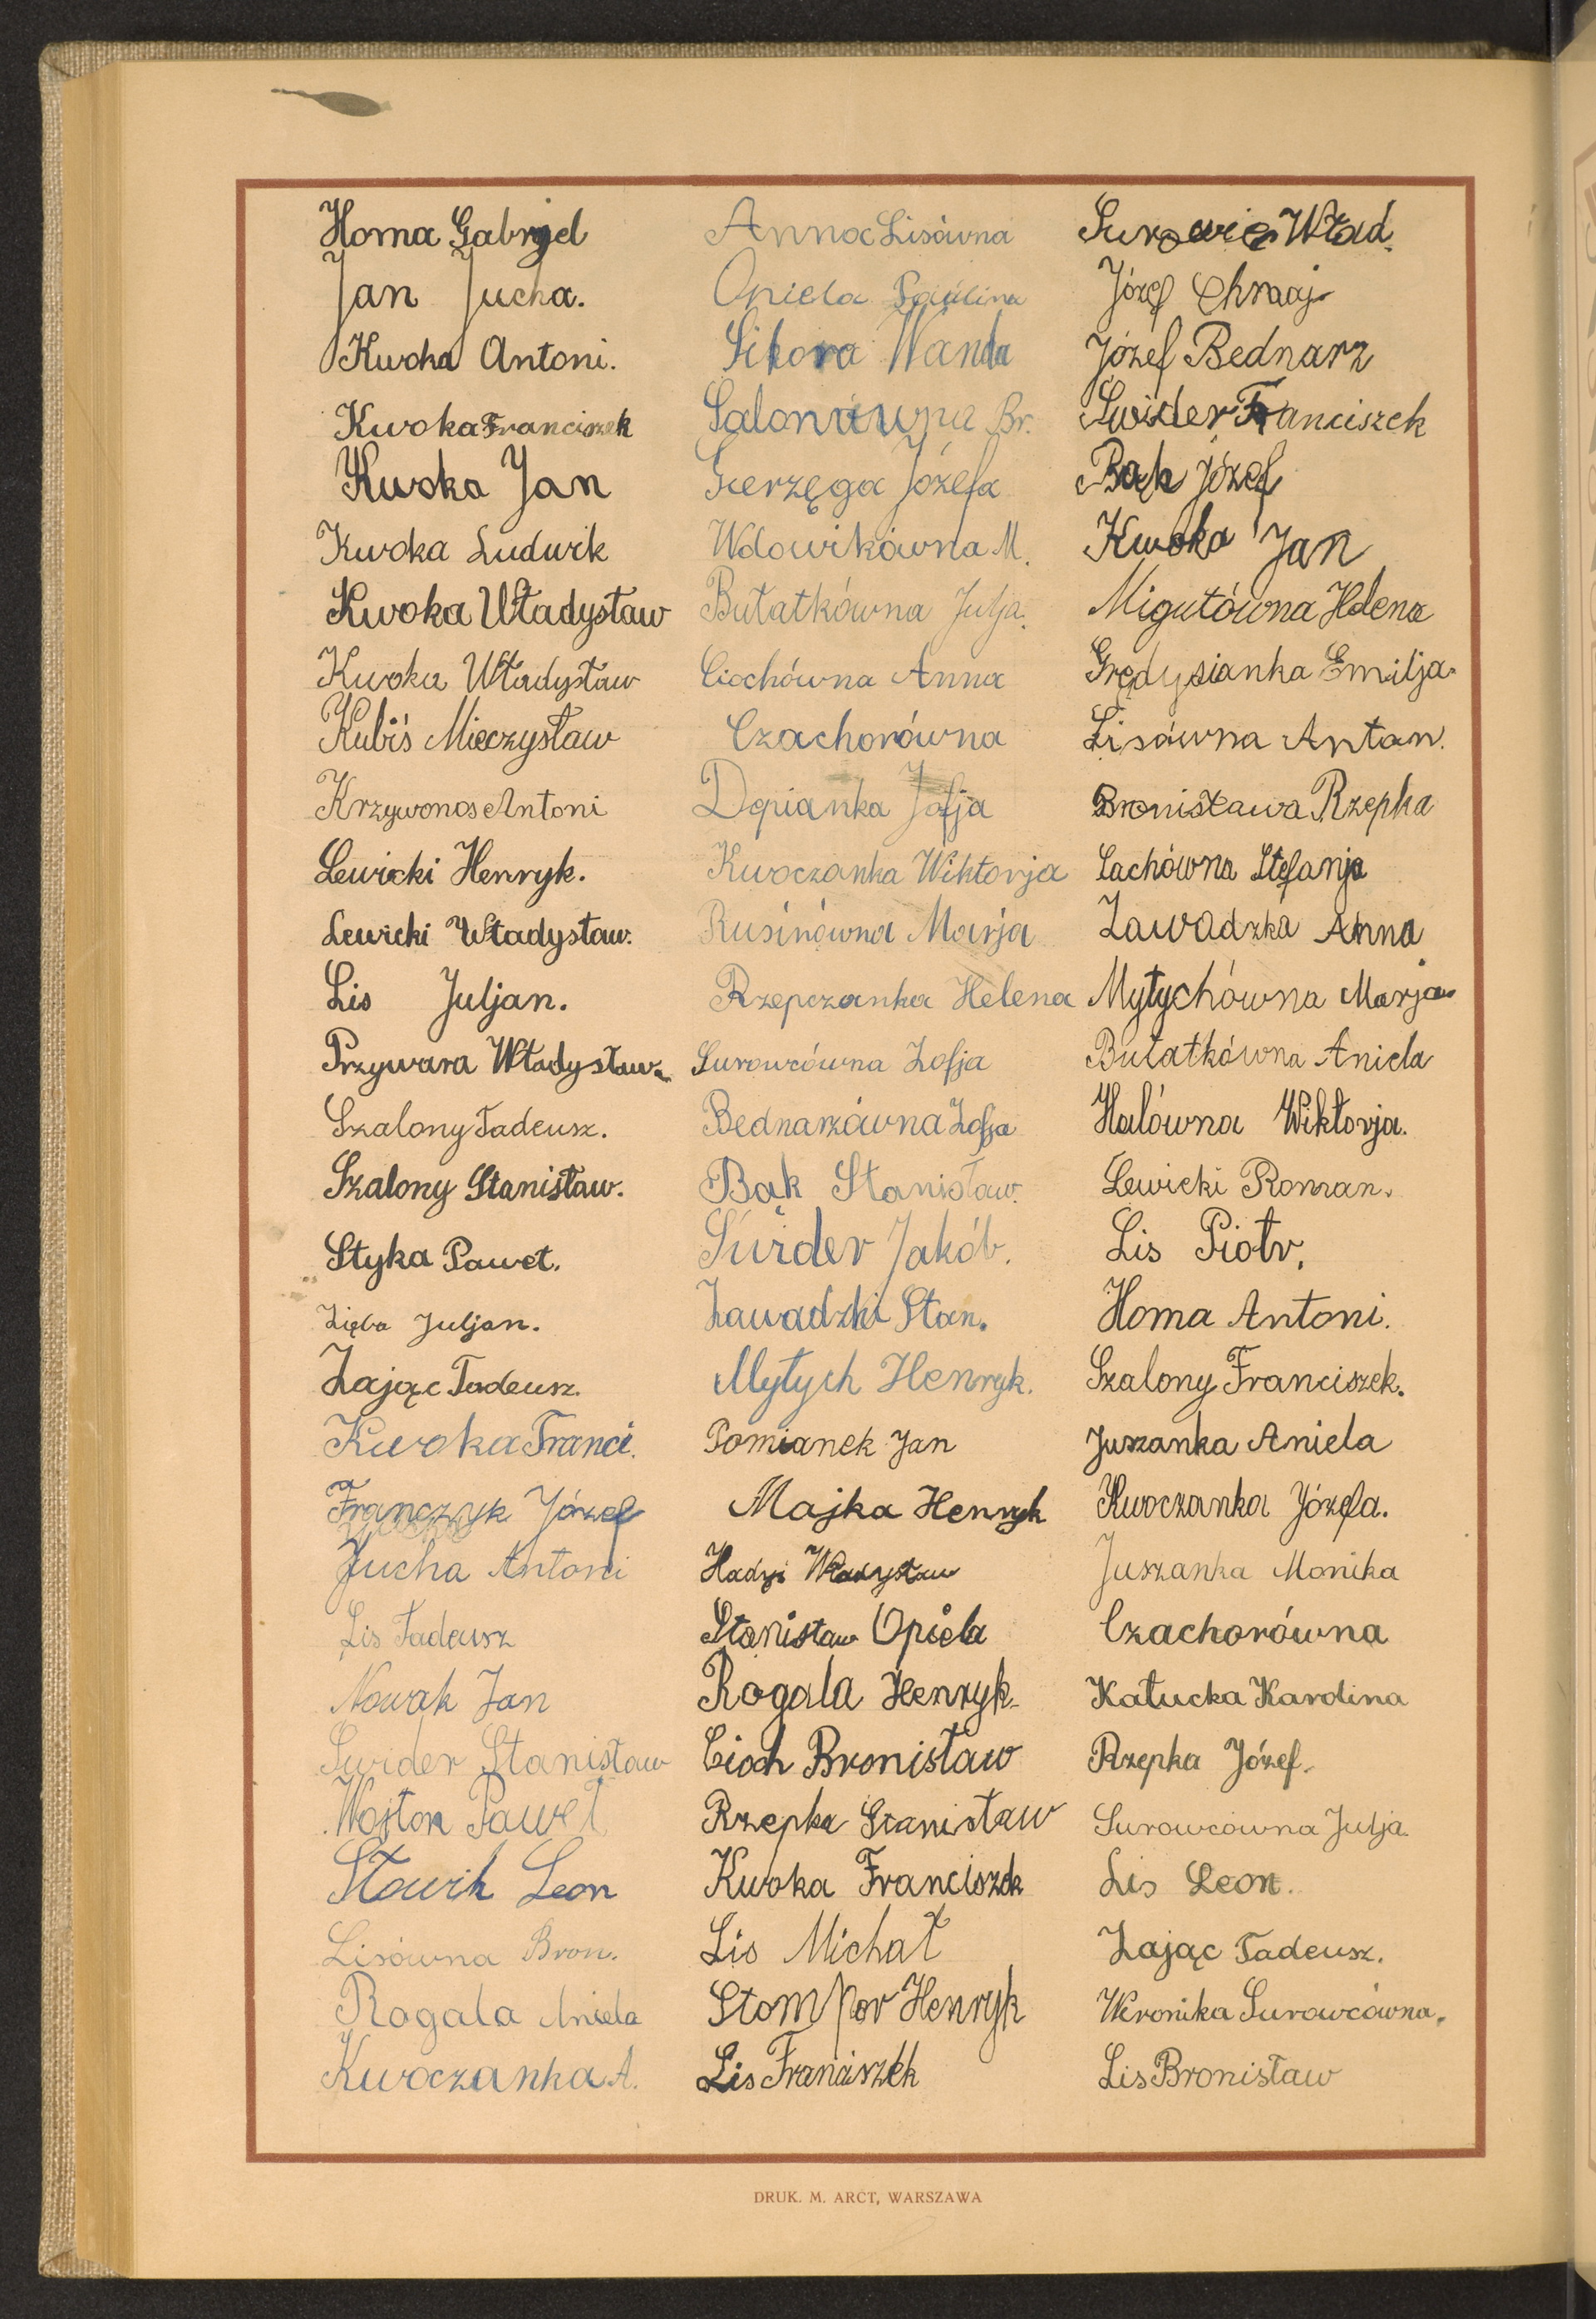 Homa Gabrjel
Jan Jucha.
Kwoka Antoni.
Kwoka Franciszek
Kwoka Jan
Kwoka Ludwik
Kwoka Władysław
Kwoka Władysław
Kubiś Mieczysław
Krzywonos Antoni
Lewicki Henryk.
Lewicki Władysław.
Lis Juljan.
Przywara Władysław
Szalony Tadeusz.
Szalony Stanisław.
Styka Paweł.
Zięba Juljan.
Zając Tadeusz.
Kwoka Franci.
Franczyk Józef
Jucha Antoni
Lis Tadeusz
Nowak Jan
Świder Stanisław
Wojton Paweł
Słowik Leon
Lisówna Bron.
Rogala Aniela
Kwoczanka A.
Anna Lisówna
Opiela Paulina
Sikora Wanda
Salonówna Br.
Gierzęga Józefa
Wdowikówna M.
Bułatkówna Julja.
Ciochówna Anna
Czachorówna
Depianka Zofja
Kwoczanka Wiktorja
Rusinówna Marja
Rzepczanka Helena
Surowcówna Zofja
Bednarzówna Zofja
Bąk Stanisław.
Świder Jakób.
Zawadzki Stan.
Mytych Henryk.
Pomianek Jan
Majka Henryk
Hadyś Władysław
Stanisław Opiela
Rogala Henryk
Cioch Bronisław
Rzepka Stanisław
Kwoka Franciszek
Lis Michał
Stompor Henryk
Lis Franciszek
Surowiec Wład.
Józef Chmaj
Józef Bednarz
Świder Franciszek
Bąk Józef
Kwoka Jan
Migutówna Helena
Grędysianka Emilja
Lisówna Antan.
Bronisława Rzepka
Lachówna Stefanja
Zawadzka Anna
Mytychówna Marja
Bułatkówna Aniela
Halówna Wiktorja.
Lewicki Roman.
Lis Piotr.
Homa Antoni.
Szalony Franciszek.
Juszanka Aniela
Kwoczanka Józefa.
Juszanka Monika
Czachorówna
Kałucka Karolina
Rzepka Józef.
Surowcowna Julja
Lis Leon.
Zając Tadeusz.
Weronika Surowcówna.
Lis Bronisław
DRUK. M. ARCT, WARSZAWA